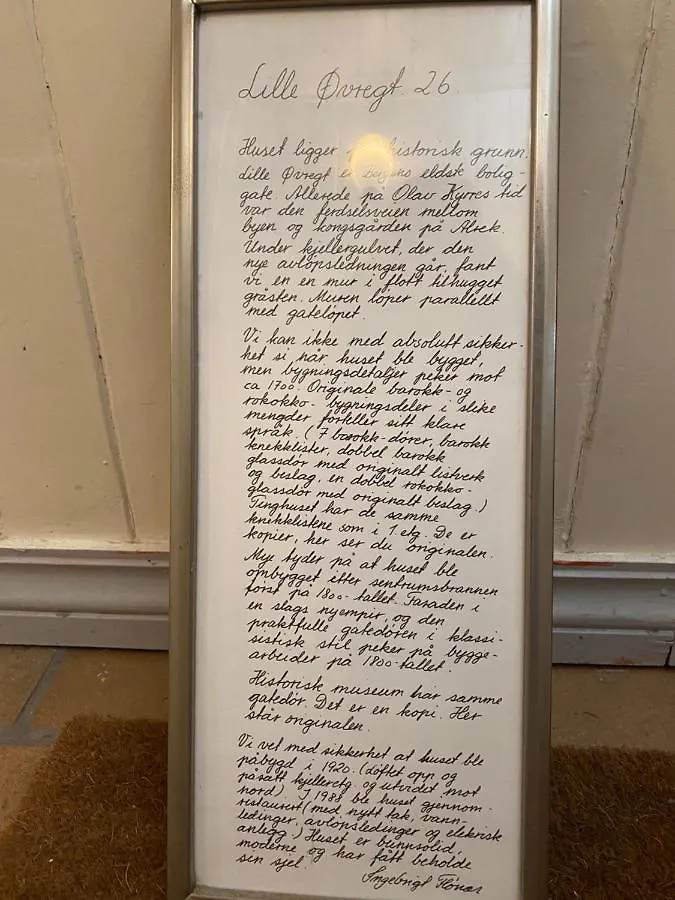 Lille Øvregt. 26
Huset ligger historisk grunn.
Lille Øvregt er Byens eldste bolig-
gate. Allerede på Olav Kyrres tid
var den ferdselsveien mellom
byen og kongsgården på Alrek.
Under kjellergulvet, der den
nye avløpsledningen går, fant
vi en en mur i flott tilhugget
gråsten. Muren løper parallellt
med gateløpet.
Vi kan ikke med absolutt sikker-
het si når huset ble bygget,
men bygningsdetaljer peker mot
ca 1700. Originale barokk- og
rokokko- bygningsdeler i slike
mengder forteller sitt klare
språk. (7 barokk-dører, barokk
knekklister, dobbel barokk
glassdør med originalt listverk
og beslag, en dobbel rokokko-
glassdør med originalt beslag.)
Tinghuset har de samme
knekklistene som i 1. etg. De er
kopier, her ser du originalen.
Mye tyder på at huset ble
ombygget etter sentrumsbrannen
først på 1800-tallet. Fasaden i
en slags nyempir, og den
praktfulle gatedøren i klassi-
sistisk stil peker på bygge-
arbeider på 1800-tallet.
Historisk museum har samme
gatedør. Det er en kopi. Her
står originalen.
Vi vet med sikkerhet at huset ble
påbygd i 1920. (løftet opp og
påsatt kjelleretg. og utvidet mot
nord). I 1988 ble huset gjennom-
restaurert (med nytt tak, vann-
ledinger, avløpsledinger og elektrisk
anlegg.) Huset er bunnsolid,
moderne og har fått beholde
sin sjel.
Ingebrigt